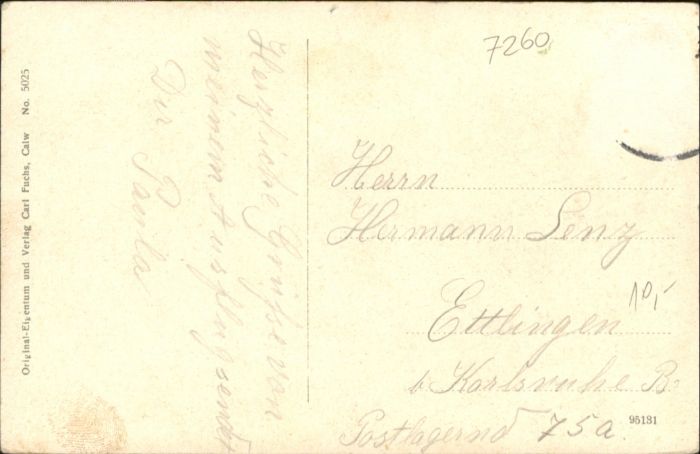 Original-Eigentum und Verlag Carl Fuchs, Calw No. 5025
Herzliche Grüsse von
meinem Ausflug sendet
Dir Paula
7260
Herrn
Hermann Lenz
Ettlingen
b. Karlsruhe B.
Postlagernd 75a.
10,-
95131